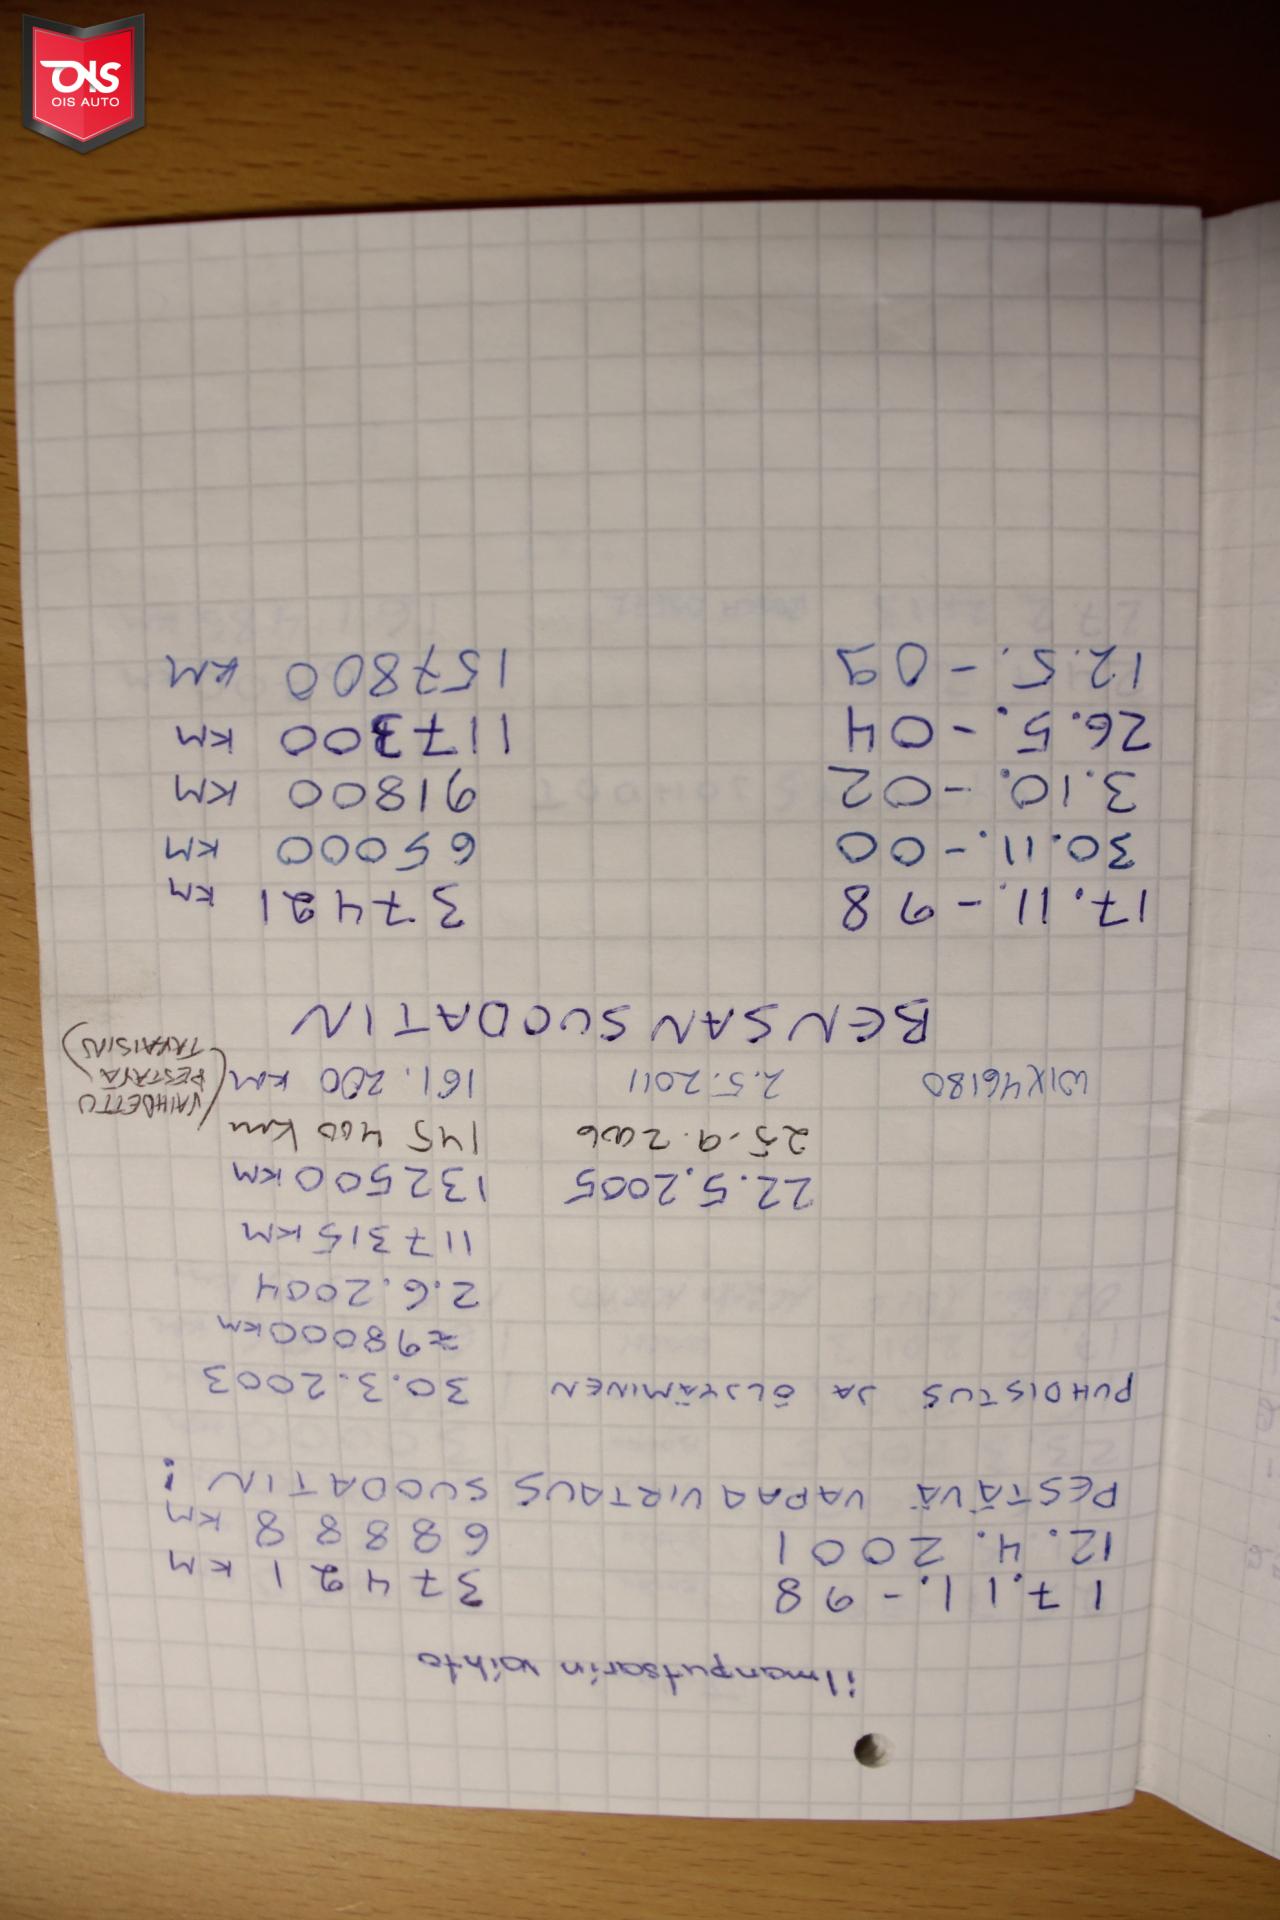 OIS
OIS AUTO
ilmanputsarin vaihto
17.11.-98 37421 KM
12.4.2001 68888 KM
PESTÄVÄ VAPAAVIRTAUS SUODATIN!
PUHDISTUS JA ÖLJYÄMINEN 30.3.2003
≈98000KM
2.6.2004
117315 KM
22.5.2005 132500KM
25.9.2006 145 400 km
WIX46180 2.5.2011 161.200 KM (VAIHDETTU
PESTÄVÄ
TAKAISIN)
BENSAN SUODATIN
17.11.-98 37421 KM
30.11.-00 65000 KM
3.10.-02 91800 KM
26.5.-04 117300 KM
12.5.-09 157800 KM